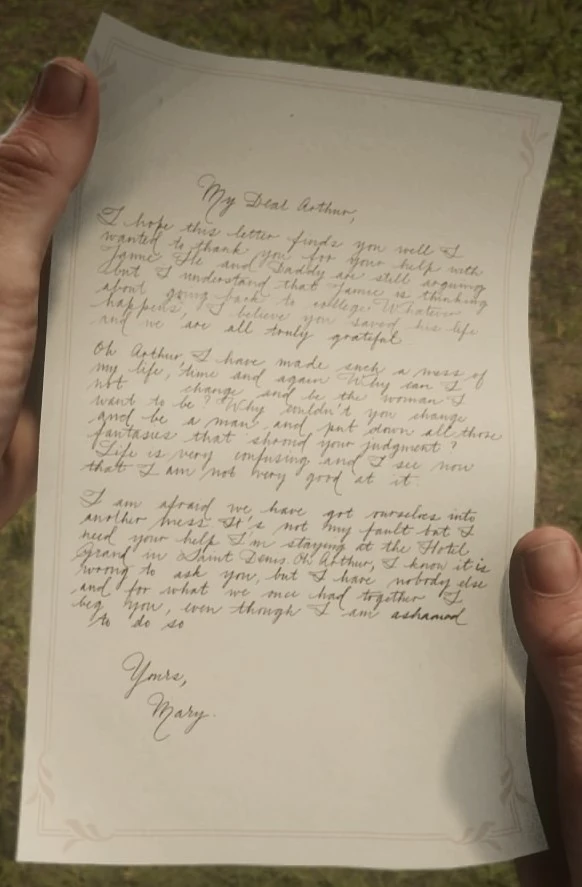 My Dear Arthur,
I hope this letter finds you well I
wanted to thank you for your help with
Jamie He and Daddy are still arguing
but I understand that Jamie is thinking
about going back to college Whatever
happens, I believe you saved his life
and we are all truly grateful
Oh Arthur, I have made such a mess of
my life, time and again Why can I
not change and be the woman I
want to be? Why couldn't you change
and be a man and put down all those
fantasies that shroud your judgment?
Life is very confusing and I see now
that I am not very good at it.
I am afraid we have got ourselves into
another mess. It's not my fault but I
need your help I'm staying at the Hotel
Grand in Saint Denis. Oh Arthur, I know it is
wrong to ask you, but I have nobody else
and for what we once had together I
beg you, even though I am ashamed
to do so
Yours,
Mary.